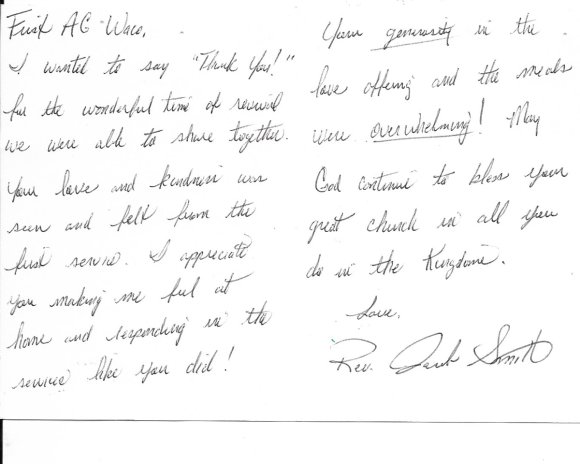 First AG Waco,
I wanted to say "Thank You!"
for the wonderful time of revival
we were able to share together.
Your love and kindness was
seen and felt from the
first service. I appreciate
you making me feel at
home and responding in the
service like you did!
Your generosity in the
love offering and the meals
were overwhelming! May
God continue to bless your
great church in all you
do in the Kingdom.
Love,
Rev. Smith